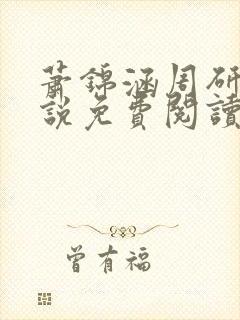 蕭錦涵周研
說免費閱讀
曾有福